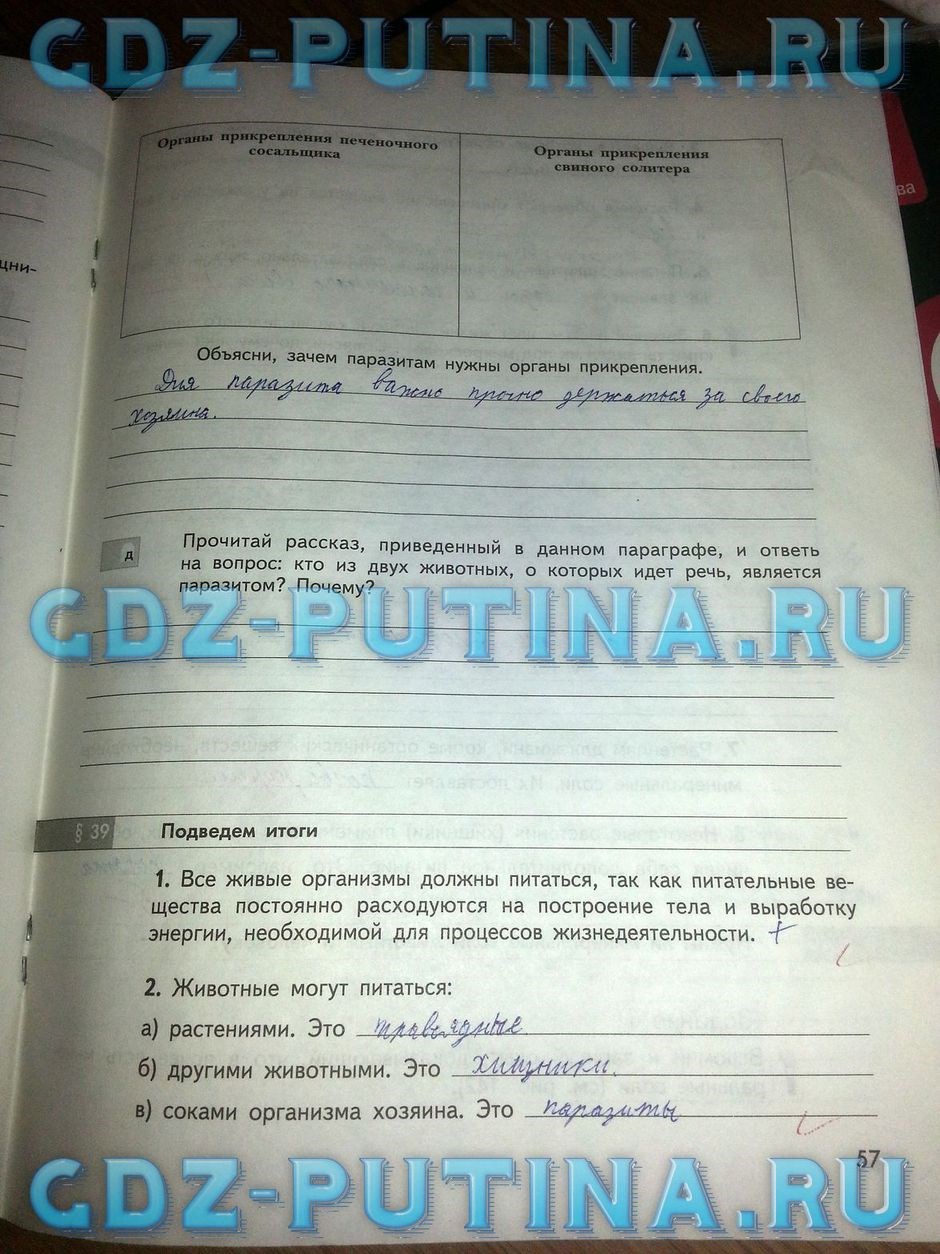 GDZ-PUTINA.RU
Органы прикрепления печеночного
сосальщика
Органы прикрепления
свиного солитера
ва
щни-
Объясни, зачем паразитам нужны органы прикрепления.
Для паразита важно прочно держаться за своего
хозяина.
д
Прочитай рассказ, приведенный в данном параграфе, и ответь
на вопрос: кто из двух животных, о которых идет речь, является
паразитом? Почему?
GDZ-PUTINA.RU
§ 39
Подведем итоги
1. Все живые организмы должны питаться, так как питательные ве-
щества постоянно расходуются на построение тела и выработку
энергии, необходимой для процессов жизнедеятельности. +
2. Животные могут питаться:
а) растениями. Это травоядные.
б) другими животными. Это хищники.
в) соками организма хозяина. Это паразиты
57
GDZ-PUTINA.RU